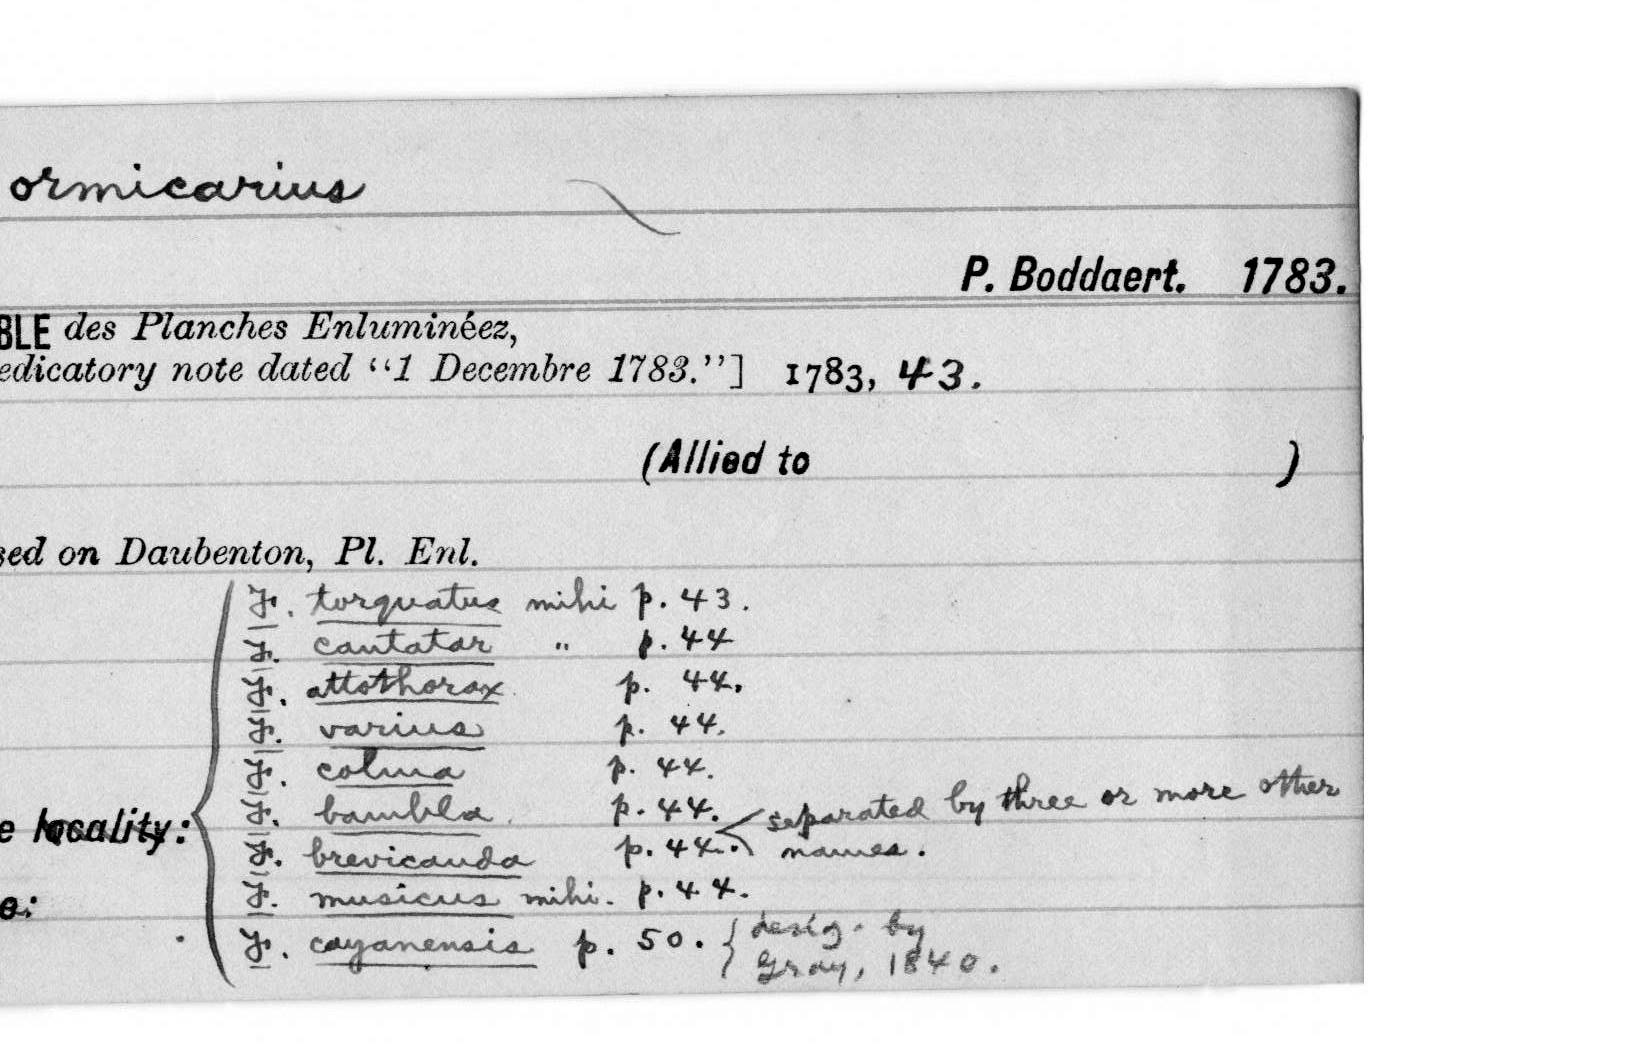 ormicarius
P. Boddaert. 1783.
BLE des Planches Enluminéez,
edicatory note dated “1 Decembre 1783.”] 1783, 43.
(Allied to )
sed on Daubenton, Pl. Enl.
F. torquatus mihi p. 43.
F. cantatar " p. 44
F. attothorax p. 44.
F. varius p. 44.
F. colma p. 44.
F. bambla p. 44.
separated by three or more other
e locality:
F. brevicauda p. 44.
names.
F. musicus mihi. p. 44.
e:
F. cayanensis p. 50. { desig. by
Gray, 1840.